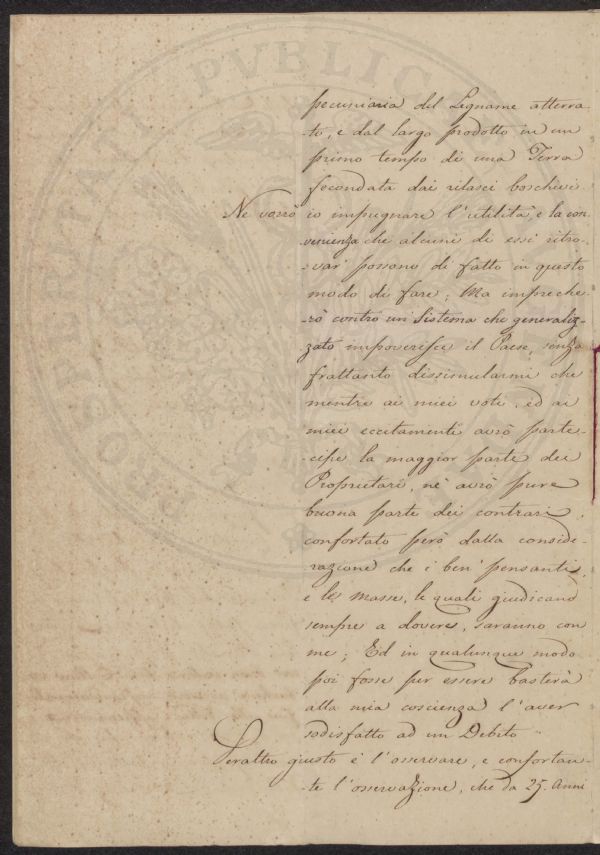 pecuniaria del Legname atterra-
-to, e dal largo prodotto in un
primo tempo di una Terra
fecondata dai rilasci boschivi
Ne vorrò io impugnare l'utilità, e la con-
venienza che alcuni di essi ritro-
-var possono di fatto in questo
modo di fare; Ma impreche-
-rò contro un Sistema che generaliz-
zato impoverisce il Paese, senza
frattanto dissimularmi che
mentre ai miei voti, ed ai
miei eccitamenti avrò parte-
-cipe la maggior parte dei
Proprietari, ne avrò pure
buona parte dei contrari,
confortato però dalla conside-
-razione che i ben' pensanti,
e le Masse, le quali giudicano
sempre a dovere, saranno con
me; Ed in qualunque modo
poi fosse per essere basterà
alla mia coscienza l'aver
sodisfatto ad un Debito
Peraltro giusto è l'osservare, e confortan-
-te l'osservazione, che da 25. Anni